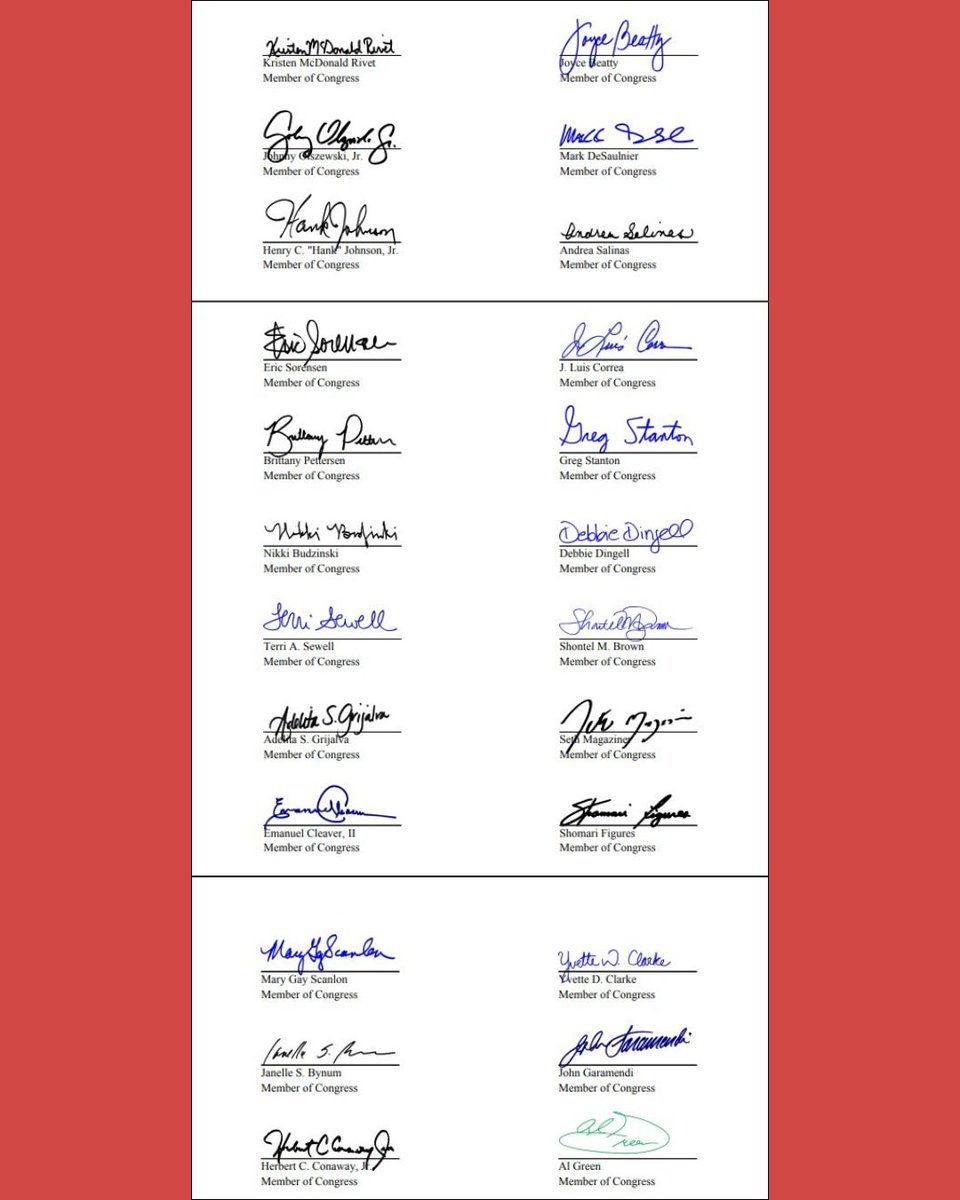 Kristen McDonald Rivet
Kristen McDonald Rivet
Member of Congress
Joyce Beatty
Joyce Beatty
Member of Congress
Johnny Olszewski, Jr.
Member of Congress
Mark DeSaulnier
Member of Congress
Hank Johnson
Henry C. "Hank" Johnson, Jr.
Member of Congress
Andrea Salinas
Andrea Salinas
Member of Congress
Eric Sorensen
Eric Sorensen
Member of Congress
J. Luis Correa
Member of Congress
Brittany Pettersen
Member of Congress
Greg Stanton
Greg Stanton
Member of Congress
Nikki Budzinski
Nikki Budzinski
Member of Congress
Debbie Dingell
Debbie Dingell
Member of Congress
Terri Sewell
Terri A. Sewell
Member of Congress
Shontel M. Brown
Member of Congress
Adelita S. Grijalva
Adelita S. Grijalva
Member of Congress
Seth Magaziner
Member of Congress
Emanuel Cleaver, II
Member of Congress
Shomari Figures
Shomari Figures
Member of Congress
Mary Gay Scanlon
Mary Gay Scanlon
Member of Congress
Yvette D. Clarke
Yvette D. Clarke
Member of Congress
Janelle S. Bynum
Member of Congress
John Garamendi
John Garamendi
Member of Congress
Herbert C Conaway Jr
Herbert C. Conaway, Jr.
Member of Congress
Al Green
Al Green
Member of Congress